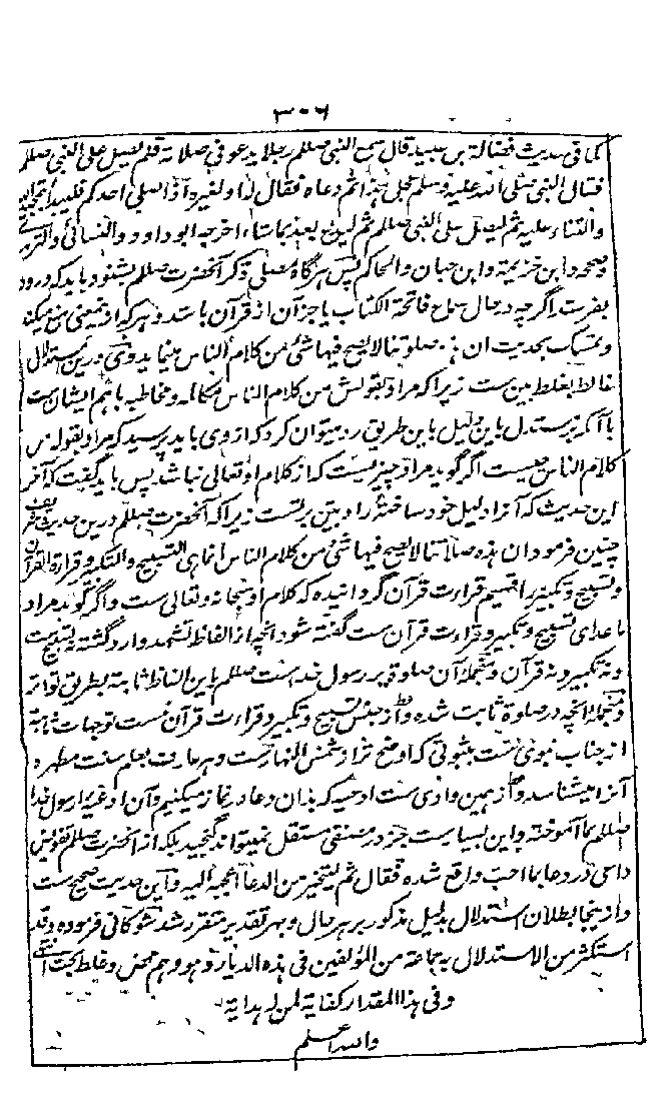 ۳۰۶
کما فی حدیث فضالة بن عبید قال سمع النبی صلعم رجلا یدعو فی صلاته فلم یصل علی النبی صلعم
فقال النبی صلی الله علیه وسلم عجل هذا ثم دعاه فقال له او لغیره اذا صلی احدکم فلیبدأ بتحمید الله
والثناء علیه ثم لیصل علی النبی صلعم ثم لیدع بعد بما شاء اخرجه ابو داود والنسائی والترمذی
وصححه وابن خزیمة وابن حبان والحاکم پس هرگاه مصلی ذکر آنحضرت صلعم بشنود باید که درود
بفرستد اگرچه در حال سماع فاتحة الکتاب یا جز آن از قرآن باشد و هر که از ینمعنی منع میکند
و تمسک بحدیث ان هذه صلوتنا لا یصح فیها شیء من کلام الناس مینماید وی درین استدلال
غالط بغلط بین ست زیرا که مراد بقولش من کلام الناس مکالمه و مخاطبه باهم ایشان ست
با آنکه بر مستدل باین دلیل باین طریق رد میتوان کرد که از وی باید پرسید که مراد بقوله من
کلام الناس چیست اگر گوید مراد چیزیست که از کلام او تعالی نباشد پس باید گفت که آخر
این حدیث که آنرا دلیل خود ساختهٔ راد بتین بر تست زیرا که آنحضرت صلعم درین حدیث شریف
چنین فرموده ان هذه صلاتنا لا یصح فیها شیء من کلام الناس انما هی التسبیح والتکبیر وقراءة القرآن
و تسبیح و تکبیر را قسیم قراءت قرآن گردانیده که کلام او سبحانه وتعالی ست و اگر گوید مراد
ماعدای تسبیح و تکبیر و قراءت قرآن ست گفته شود آنچه از الفاظ تشهد وارد گشته نه تسبیح ست
و نه تکبیر و نه قرآن و منجملهٔ آن صلوة بر رسول خدا ست صلعم باین الفاظ ثابته بطریق تواتر
و منجملهٔ آنچه در صلوة ثابت شده و نه از جنس تسبیح و تکبیر و قراءت قرآن ست توجهات ثابته
از جناب نبوی ست بثبوتی که اوضح تر از شمس النهار ست و هر عارف بعلم سنت مطهره
آنرا میشناسد و از همین وادی ست ادعیه که بدان دعا در نماز میکنیم و آن ادعیه را رسول خدا
صلعم بما آموخته و این بسیار ست جز در مصنفی مستقل نمیتواند گنجید بلکه از آنحضرت صلعم تفویض
داعی در دعا بما احب واقع شده فقال ثم لیتخیر من الدعا اعجبه الیه و این حدیث صحیح ست
و ازینجا بطلان استدلال بدلیل مذکور بر هر حال و بهر تقدیر متقرر شد شوکانی فرموده وقد
استکثر من الاستدلال به جماعة من المؤلفین فی هذه الدیار وهو وهم محض وغلط بحت انتهی
وفی هذا المقدار کفایة لمن له هدایة
والله اعلم